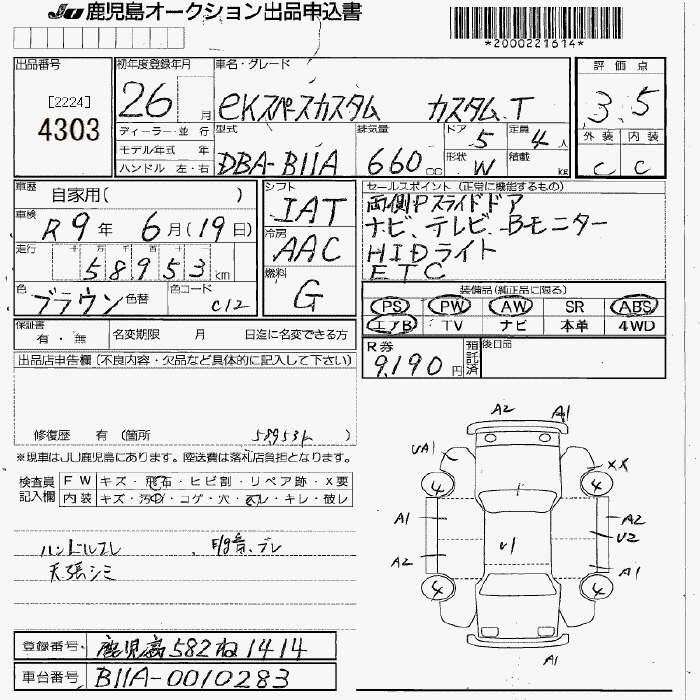 JU 鹿児島オークション出品申込書
*2000221614*
出品番号 [2224] 4303
初年度登録年月 26 月
車名・グレード eKスペースカスタム カスタムT
評価点 3.5
ディーラー・並行
モデル年式 年
ハンドル 左・右
型式 DBA-B11A
排気量 660 cc
ドア 5
定員 4 人
形状 W
積載 KG
外装 C
内装 C
車歴 自家用( )
車検 R9年 6月(19日)
走行 十 万 千 百 十
58953 km
色 ブラウン 色替
色コード C12
シフト IAT
冷房 AAC
燃料 G
セールスポイント (正常に機能するもの)
両側Pスライドドア
ナビ、テレビ、Bモニター
HIDライト
ETC
装備品(純正品に限る)
PS PW AW SR ABS
エアB TV ナビ 本革 4WD
保証書 有・無
名変期限 月 日迄に名変できる方
R券 9,190円 預託済
後日品
出品店申告欄(不良内容・欠品など具体的に記入して下さい)
修復歴 有 (箇所 58953k )
※現車はJU鹿児島にあります。陸送費は落札店負担となります。
検査員記入欄
FW キズ・飛石・ヒビ割・リペア跡・X要
内装 キズ・汚れ・コゲ・穴・スレ・キレ・破レ
ハンドルスレ
天張シミ
登録番号 鹿児島 582 ね 1414
車台番号 B11A-0010283
A2 A1
UA1 XX
4 4
A1 A2
U1 U2
A2 A1
4 4
A1